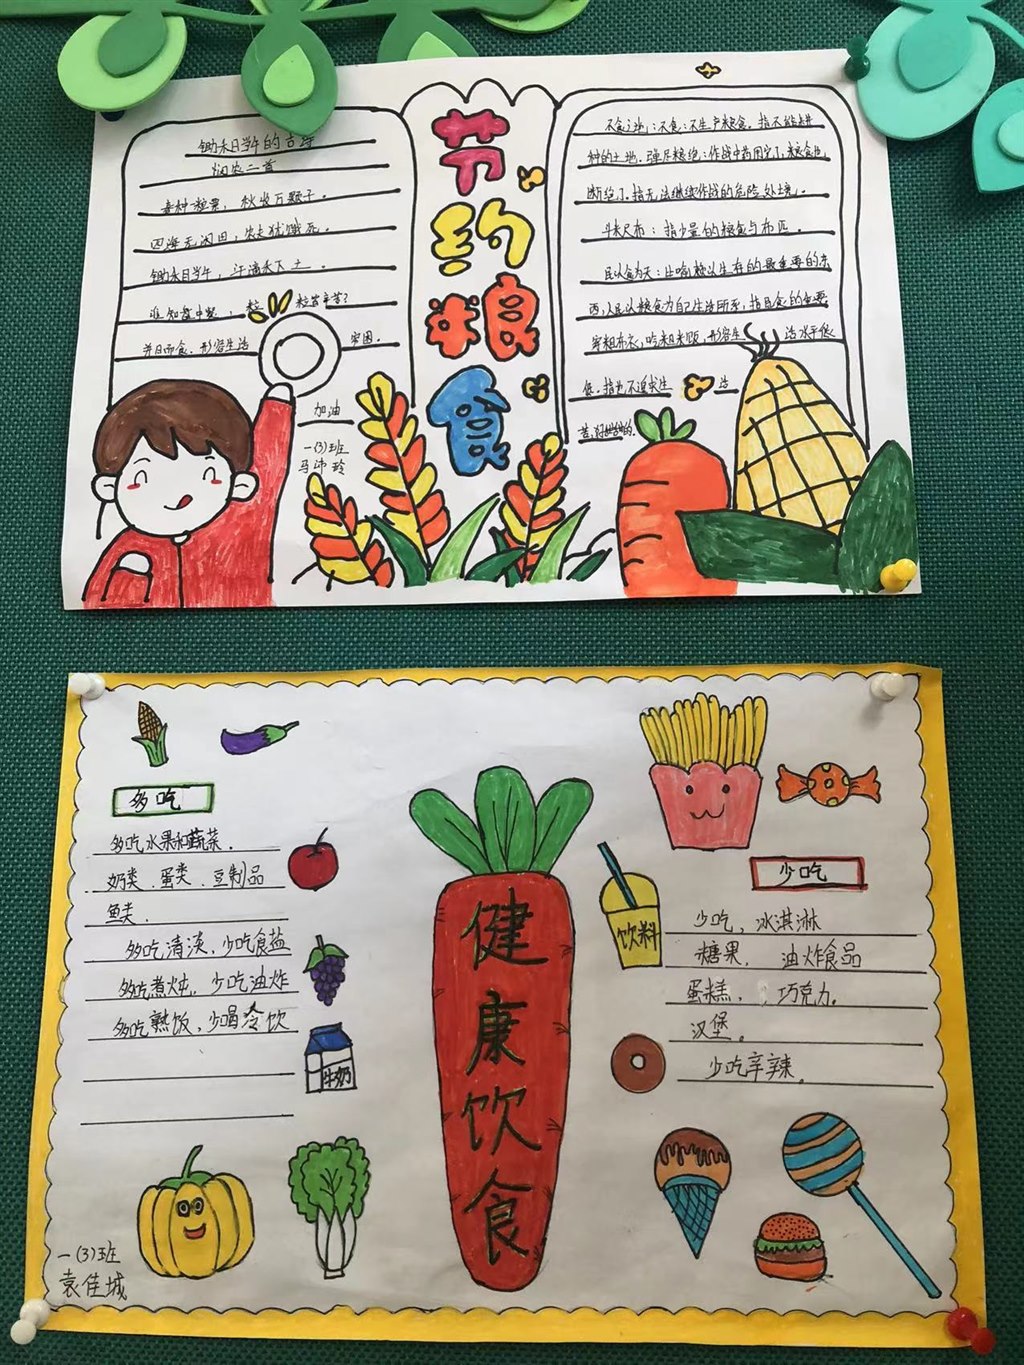 锄禾日当午的古诗
悯农二首
春种一粒粟，秋收万颗子。
四海无闲田，农夫犹饿死。
锄禾日当午，汗滴禾下土。
谁知盘中餐，粒粒皆辛苦？
并日而食．形容生活 窘困．
加油
一(3)班
马沛玲
节
约
粮
食
不食之地：：不食：不生产粮食．指不能耕
种的土地．弹尽粮绝：作战中药用完了，粮食也
断绝了．指无法继续作战的危险处境。
斗米尺布：指少量的粮食与布匹。
民以食为天：比喻赖以生存的最重要的东
西．人民以粮食为自己生活所系，指民食的重要
穿粗布衣，吃粗米饭，形容生 活水平很
低．指为不追求生 造
多吃
多吃水果和蔬菜．
奶类．蛋类．豆制品
鱼类．
多吃清淡，少吃食盐
多吃煮炖，少吃油炸
多吃熟饭，少喝冷饮
牛奶
一(3)班
袁佳城
健
康
饮
食
少吃
饮料
少吃，冰淇淋
糖果， 油炸食品
蛋糕， 巧克力．
汉堡．
少吃辛辣．